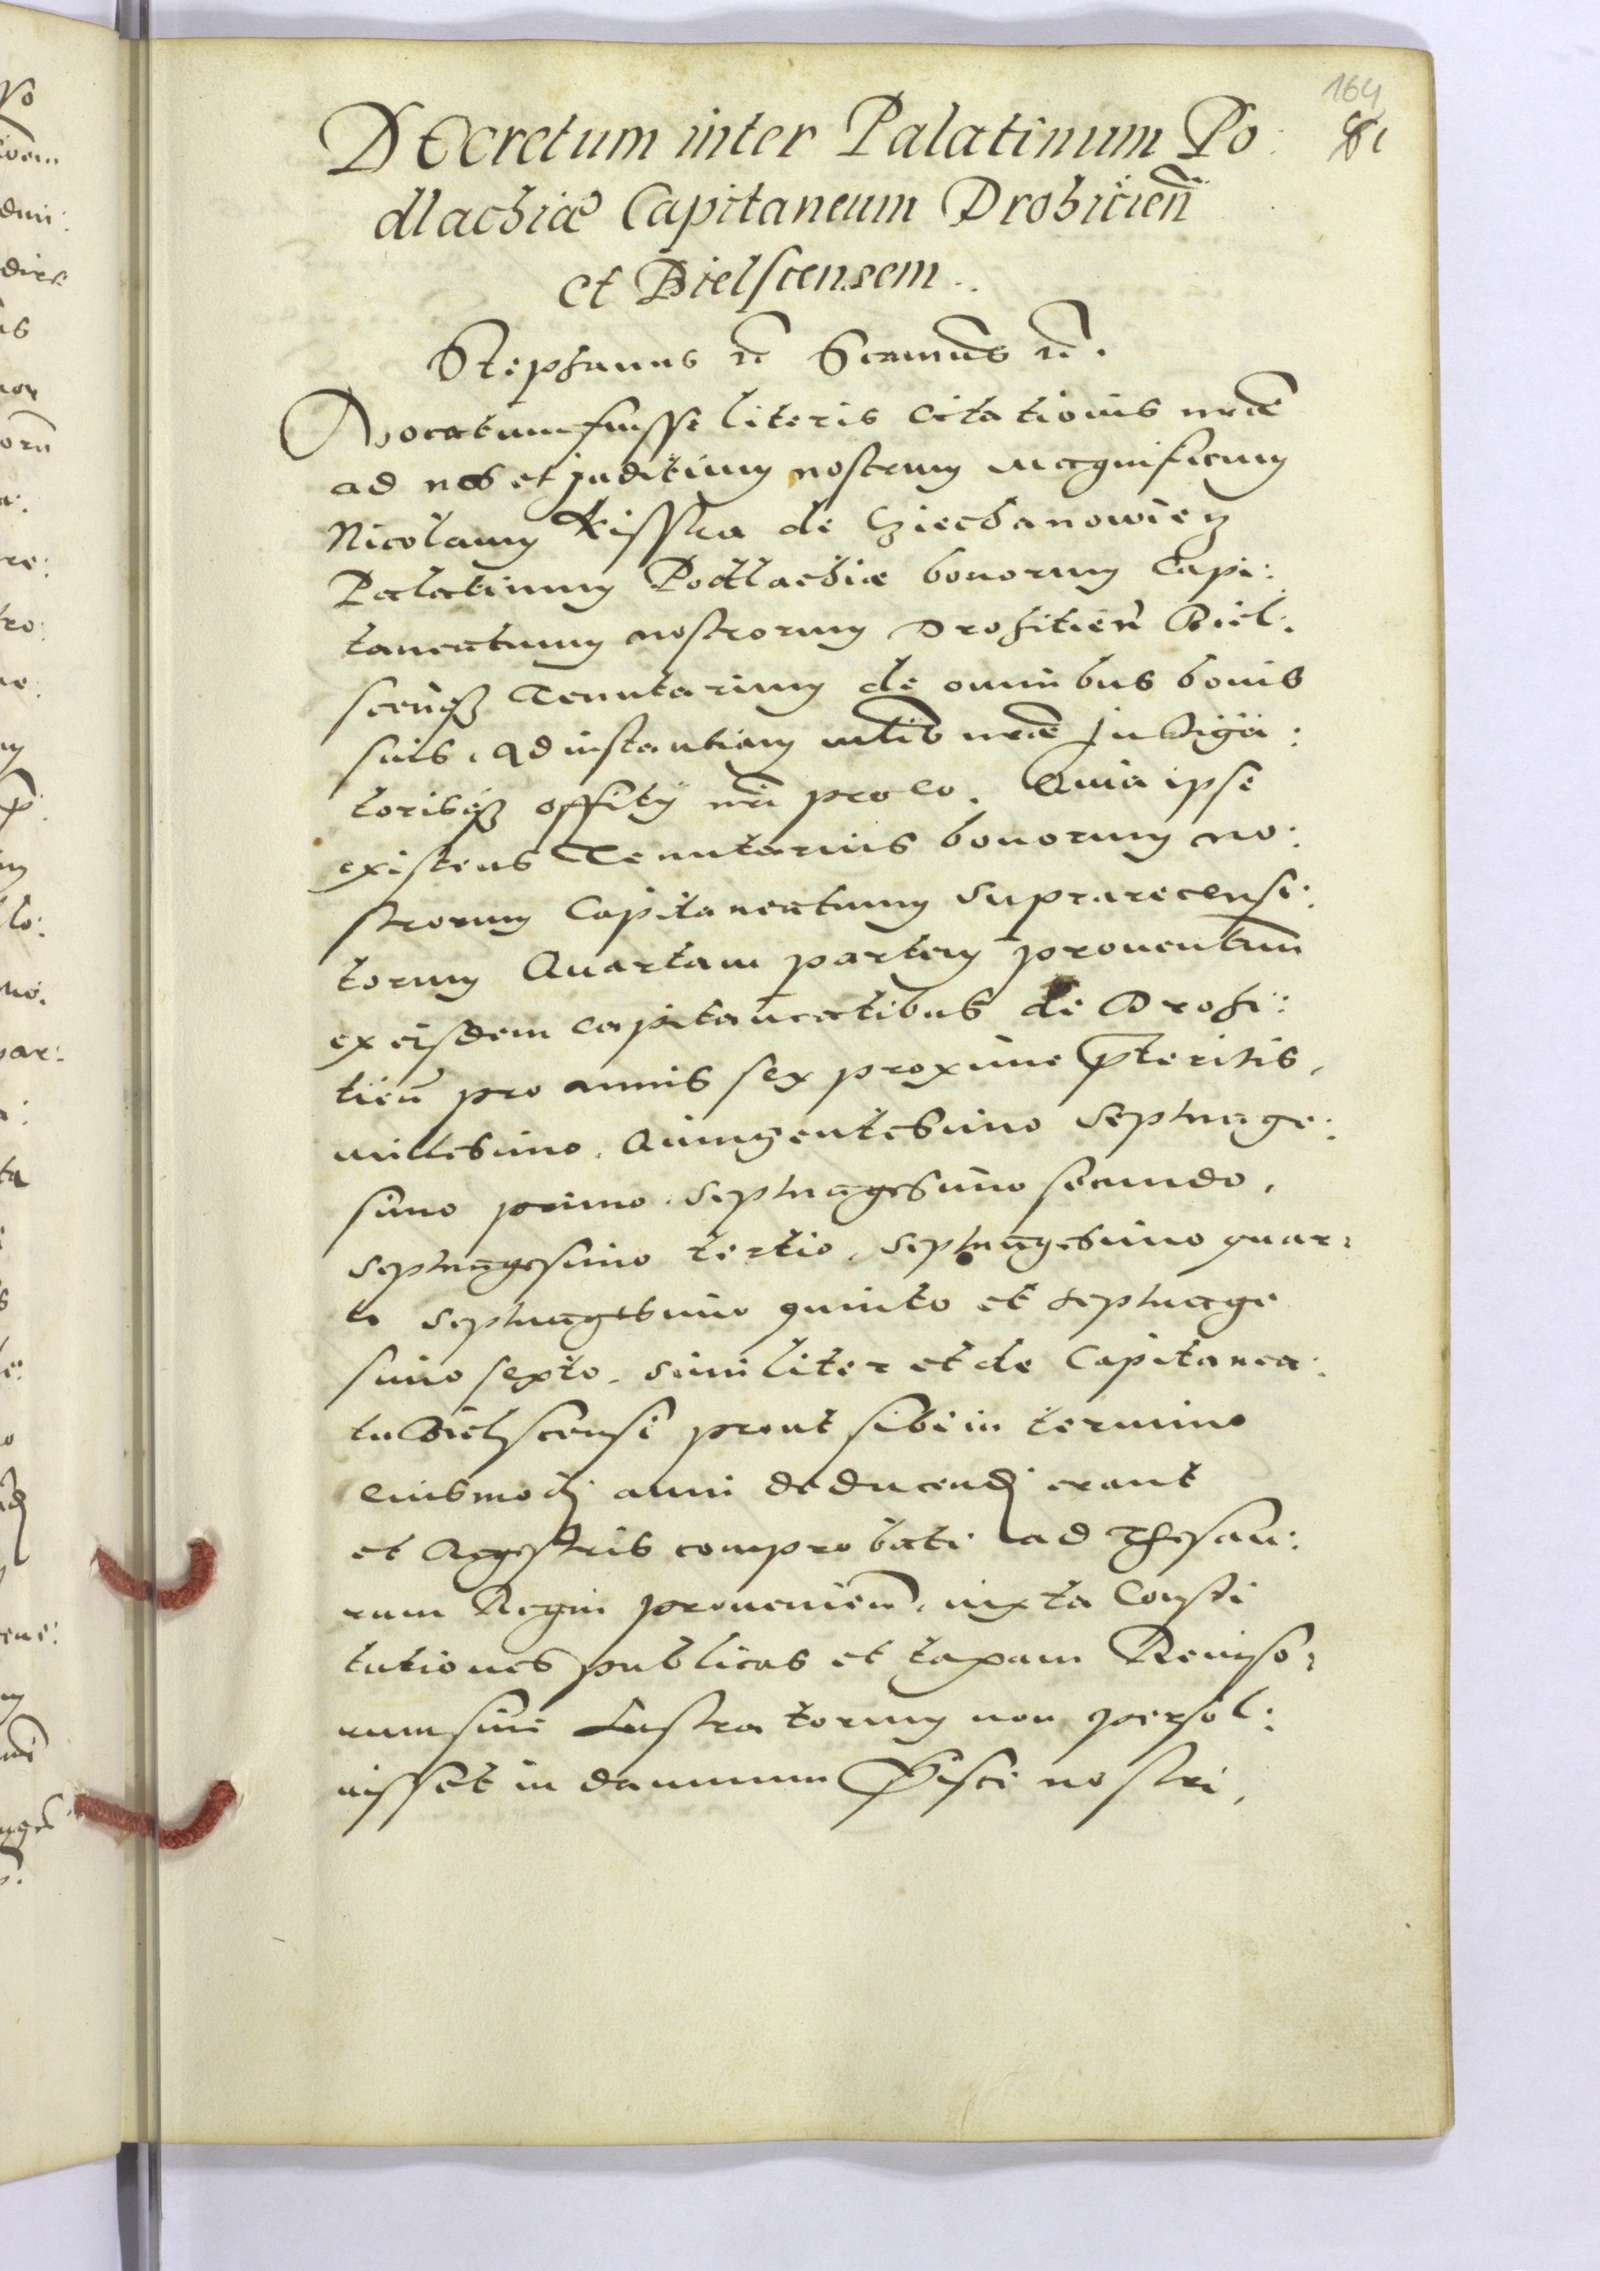 164
81
DEcretum inter Palatinum Po:
dlachiæ Capitaneum Drohicien̄
et Bielscensem..
Stephanus rc̄ Scimus rc̄.
Vocatum fuisse literis Citationis nr̄æ
ad nos et juditium nostrum magnificum
Nicolaum Kisska de Cziechanowiecz
Palatinum Podlachiæ bonorum Capi:
taneatuum nostrorum Drohitien̄ Biel:
scenq̃ Tenutarium de omnibus bonis
suis, ad instantiam mtis nr̄æ Instiga:
torisq̃ offitij nr̄i pro eo. Quia ipse
existens Tenutarius bonorum no:
strorum Capitaneatuum suprarecensi:
torum Quartam partem prouentuum
ex eisdem capitaneatibus de Drohi:
tien̄ pro annis sex proxime p̄teritis,
millesimo, Quingentesimo septuage:
simo primo, septuagesimo secundo,
septuagesimo tertio, septuagesimo quar:
to septuagesimo quinto et septuage
simo sexto, similiter et de Capitanea:
tu Bielscensi prout sibi in termino
eiusmodj anni deducendj erant
et Regestris comprobati ad Thesau:
rum Regni prouenien̄, iuxta Consti
tutiones publicas et taxam Reuiso:
rum siue Lustratorum non persol:
uisset in damnum Fisci nostri,